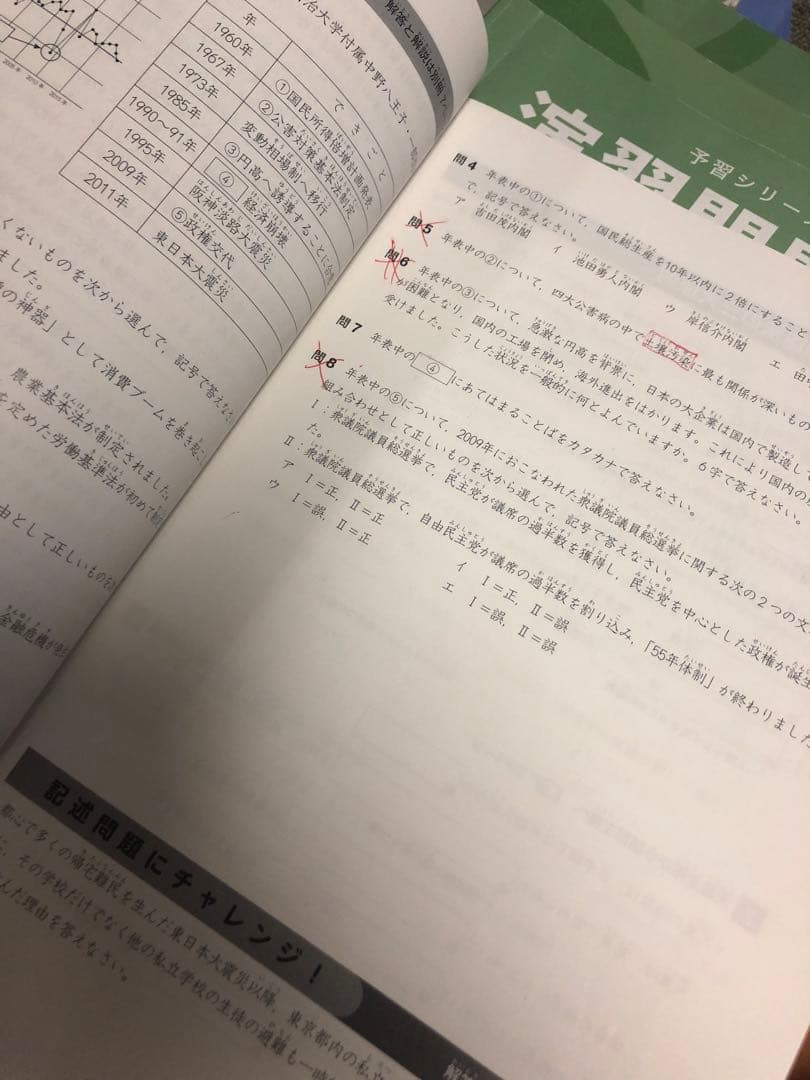 解答と解説は別冊
治大学付属中野八王子
年
できごと
1960年
①国民所得倍増計画発表
1967年
②公害対策基本法制定
1973年
変動相場制へ移行
1985年
③円高へ誘導することに合
1990〜91年
④ 経済崩壊
1995年
阪神淡路大震災
2009年
⑤政権交代
2011年
東日本大震災
くないものを次から選んで，記号で答えなさ
ました。
の神器」として消費ブームを巻き起こ
農業基本法が制定されました。
を定めた労働基準法が初めて制
由として正しいものを
金融危機が
予習シリーズ
演習問題
問4 年表中の①について，国民総生産を10年以内に2倍にすること
で，記号で答えなさい。
ア 吉田茂内閣 イ 池田勇人内閣 ウ 岸信介内閣 エ
問5 年表中の②について，四大公害病の中で土壌汚染に最も関係が深いもの
問6 年表中の③について，急激な円高を背景に，日本の大企業は国内で製造して
が困難となり，国内の工場を閉め，海外進出をはかります。これにより国内の
受けました。こうした状況を一般的に何とよんでいますか。6字で答えなさい。
問7 年表中の ④ にあてはまることばをカタカナで答えなさい。
問8 年表中の⑤について，2009年におこなわれた衆議院議員総選挙に関する次の2つの文
組み合わせとして正しいものを次から選んで，記号で答えなさい。
Ⅰ：衆議院議員総選挙で，民主党が議席の過半数を獲得し，民主党を中心とした政権が誕生
た。
Ⅱ：衆議院議員総選挙で，自由民主党が議席の過半数を割り込み，「55年体制」が終わりました
ア Ⅰ＝正，Ⅱ＝正 イ Ⅰ＝正，Ⅱ＝誤
ウ Ⅰ＝誤，Ⅱ＝正 エ Ⅰ＝誤，Ⅱ＝誤
記述問題にチャレンジ！
都心で多くの帰宅難民を生んだ東日本大震災以降，東京都内の私立
その学校だけでなく他の私立学校の生徒の避難も一時
んだ理由を答えなさい。